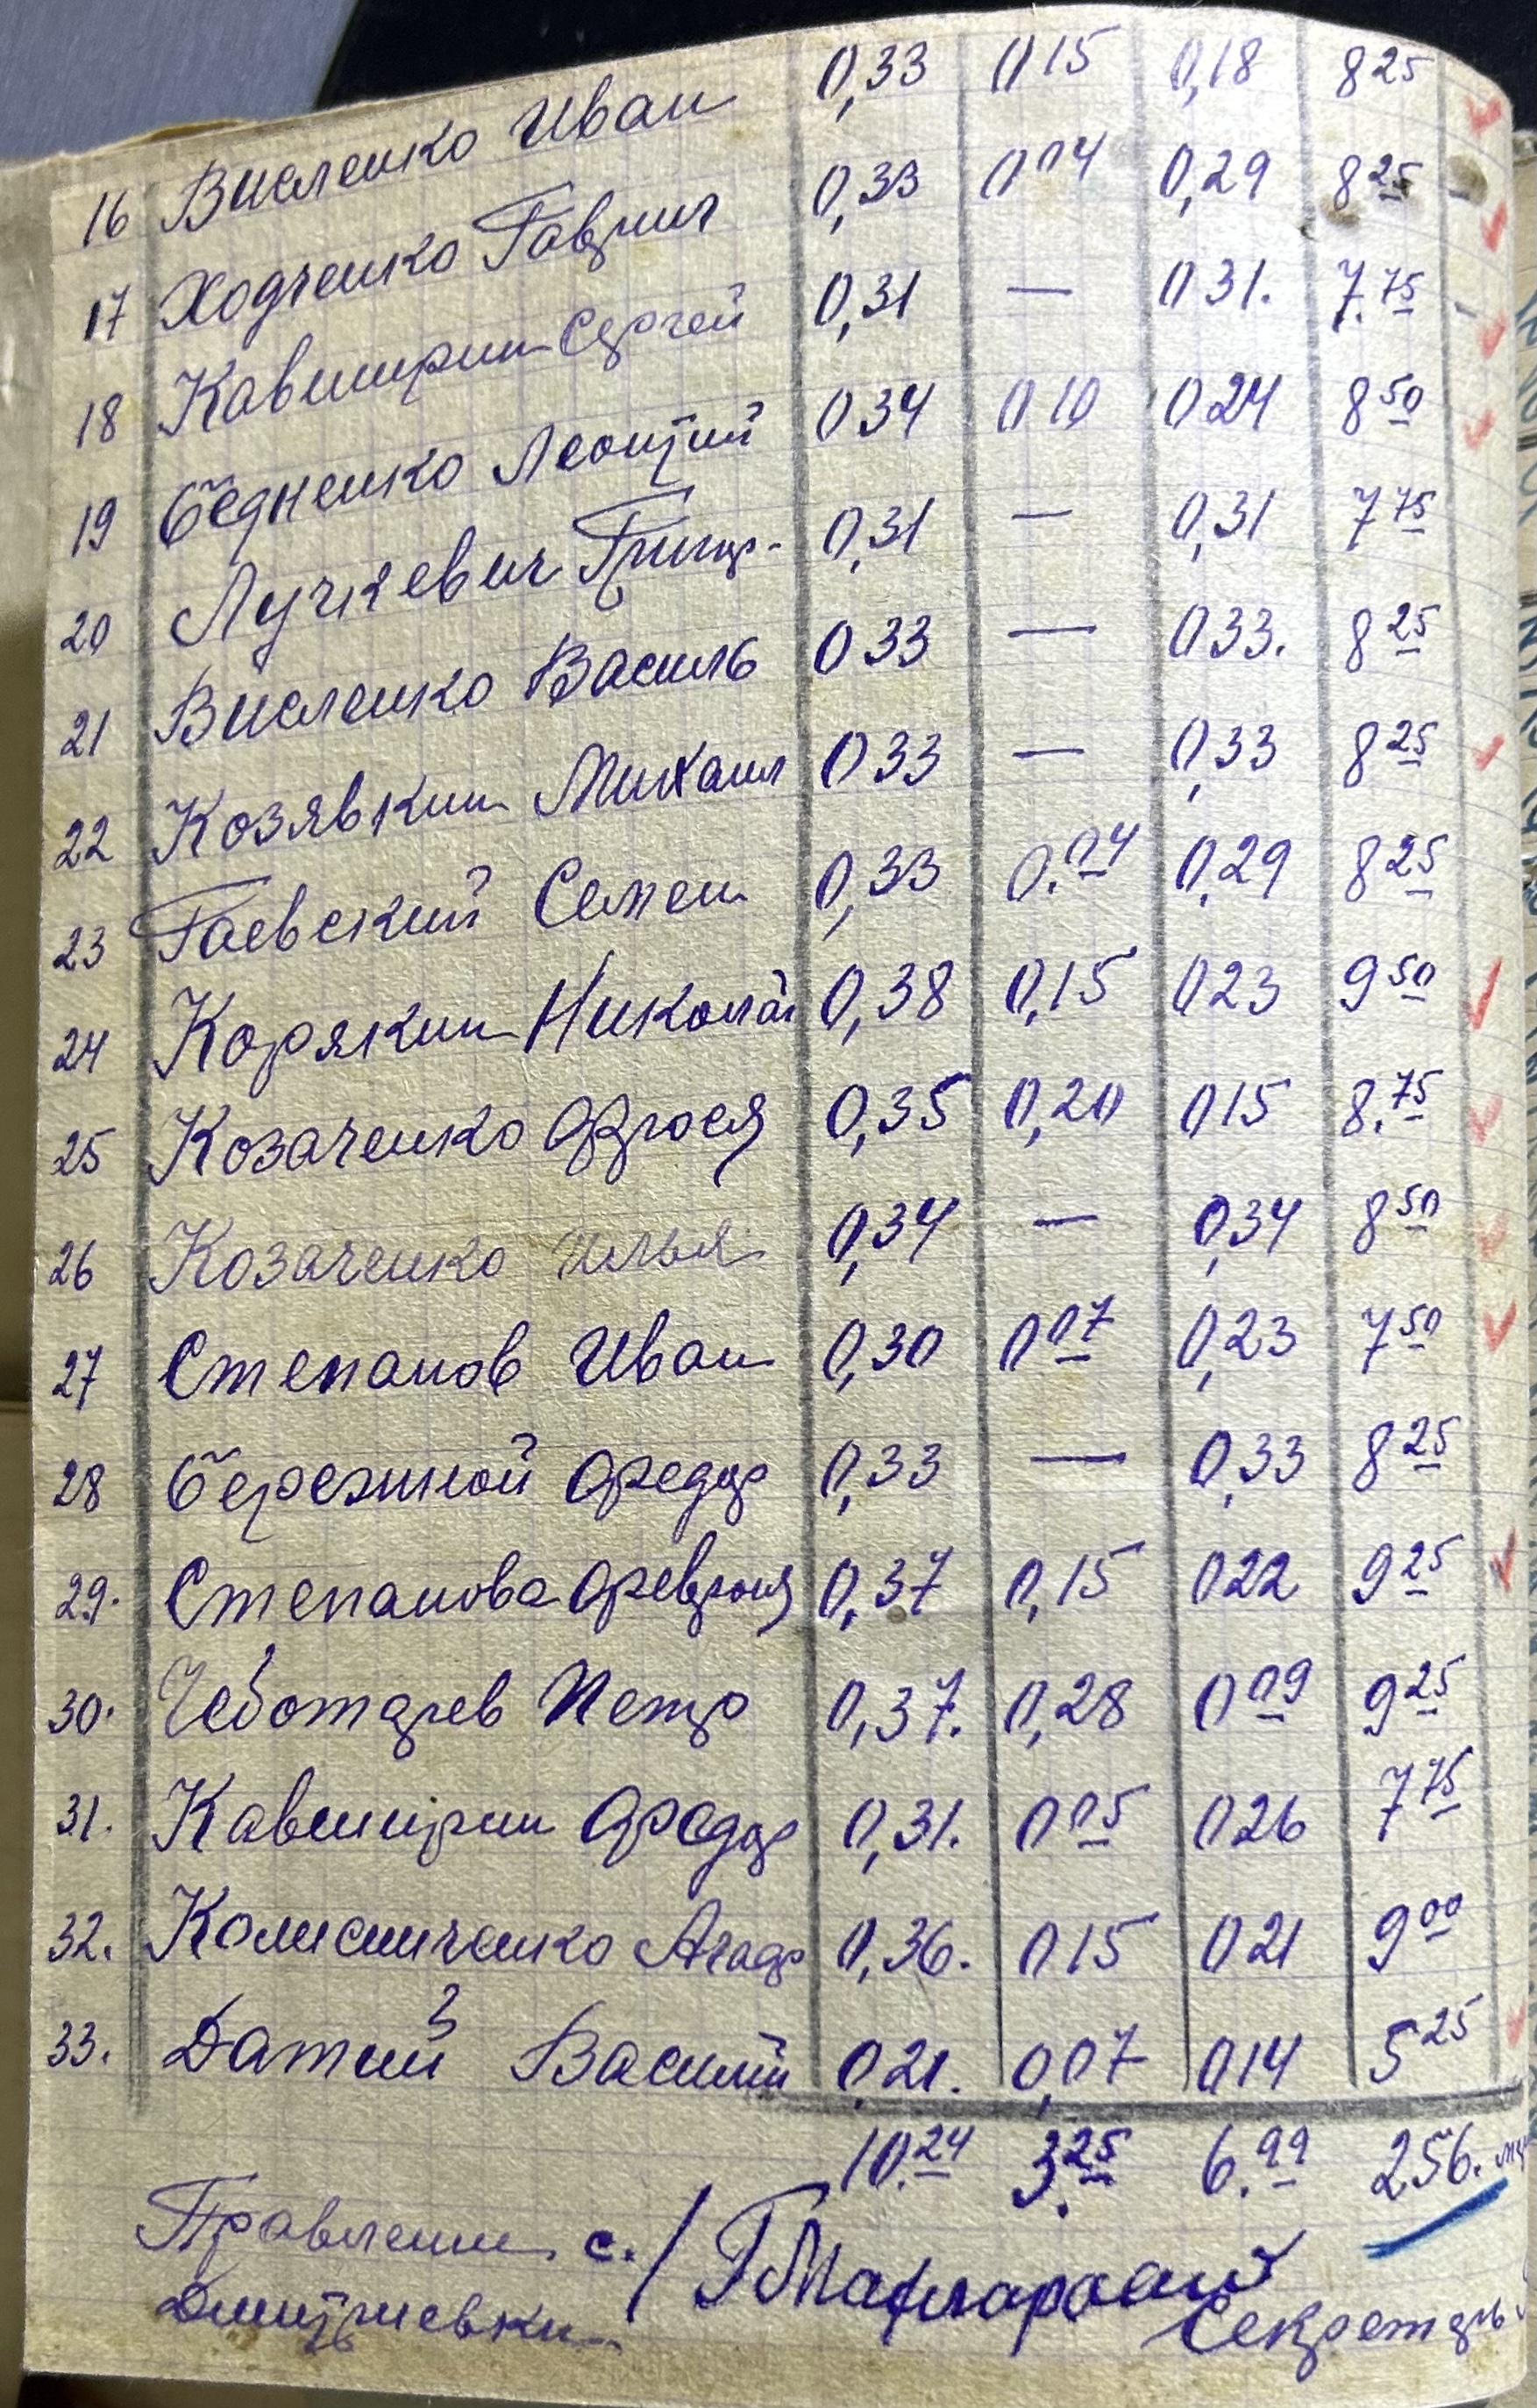 16 Висленко Иван 0,33 0 15 0,18 8 25
17 Ходченко Гаврил 0,33 0 04 0,29 8 25
18 Кавширин Сергей 0,31 — 0 31. 7.75
19 Бедненко Леонтий 0 34 0 10 0 24 8 50
20 Лучкевич Григор. 0,31 — 0,31 7 75
21 Висленко Василь 0 33 — 0 33. 8 25
22 Козявкин Михаил 0 33 — 0,33 8 25
23 Гаевский Семен 0,33 0.04 0,29 8 25
24 Корякин Николай 0,38 0,15 0 23 9 50
25 Козаченко Фрося 0,35 0,20 0 15 8.75
26 Козаченко Илья 0,34 — 0,34 8 50
27 Степанов Иван 0,30 0 07 0,23 7 50
28 Бережной Федор 0,33 — 0,33 8 25
29. Степанова Феврон 0,37 0,15 0 22 9 25
30. Чеботарев Петр 0,37. 0,28 0 09 9 25
31. Кавширин Федор 0,31. 0 05 0 26 7 75
32. Колисниченко Агаф 0,36. 0 15 0 21 9 00
33. Датий Василий 0,21. 0,07 0 14 5 25
10.24 3.25 6.99 256.
Правлении с. /
Дмитриевки Секретарь